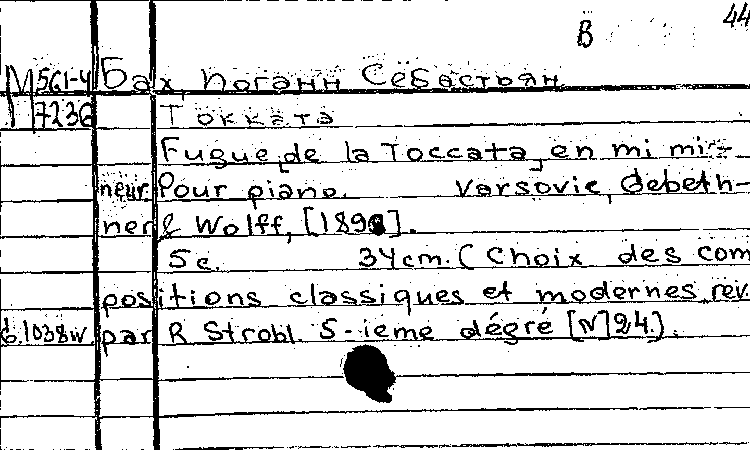 B 44
М 561-4 Бах, Иоганн Себастьян
7236 Токката
Fugue, de la Toccata, en mi mi-
neur. Pour piano. Varsovie, Gebeth-
ner & Wolff, [1890].
5 c. 34 cm. (Choix des com
positions classiques et modernes rev.
6.1038w. par R Strobl. 5-ieme dégré [N] 24.).